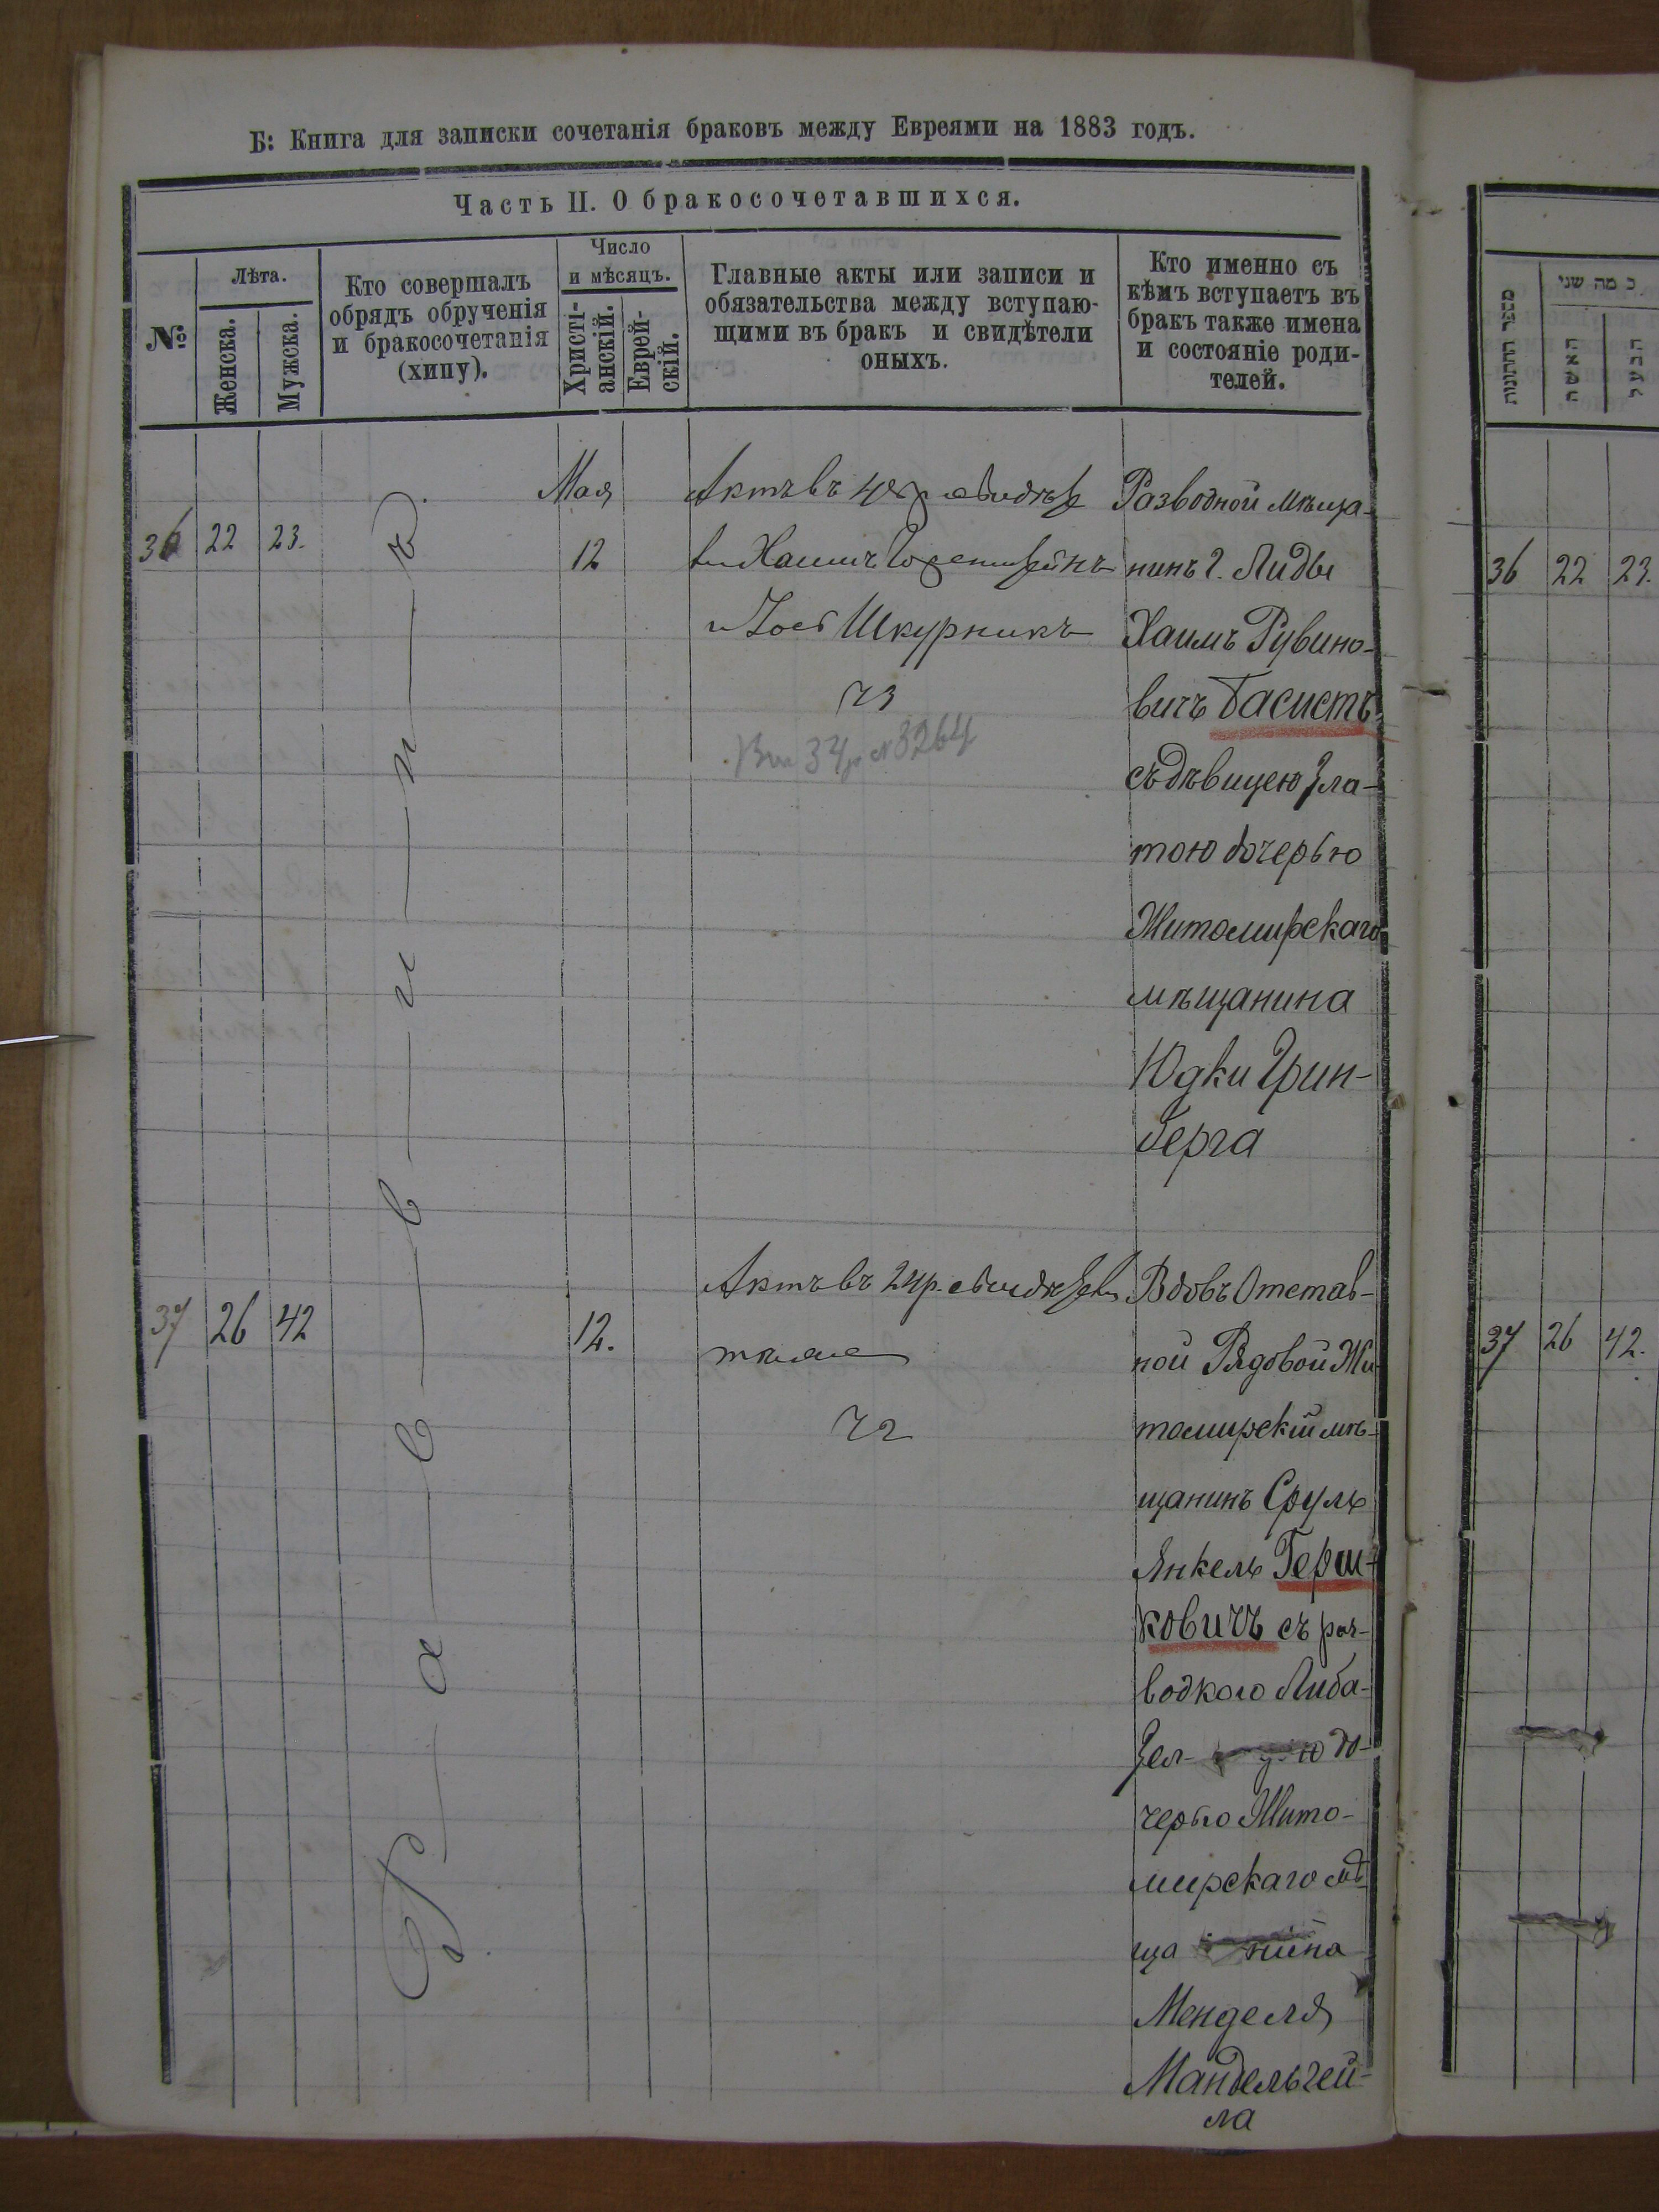 Б: Книга для записки сочетанія браковъ между Евреями на 1883 годъ.
Часть II. О бракосочетавшихся.
№
Лѣта.
Женска.
Мужска.
Кто совершалъ
обрядъ обрученія
и бракосочетанія
(хипу).
Число
и мѣсяцъ.
Христі-
анскій.
Еврей-
скій.
Главные акты или записи и
обязательства между вступаю-
щими въ бракъ и свидѣтели
оныхъ.
Кто именно съ
кѣмъ вступаетъ въ
бракъ также имена
и состояніе роди-
телей.
Раввинъ
36 22 23.
Мая
12
Актъ въ
Хаимъ
Шкурникъ
73
3264
Разводной мѣща-
нинъ г. Лиды
Хаимъ Рувино-
вичъ Басистъ
съ дѣвицею Зла-
тою дочерью
Житомирскаго
мѣщанина
Юдки Грин-
берга
37 26 42
12.
Актъ въ
72
Вдовъ Отстав-
ной Рядовой Жи-
томирскій мѣ-
щанинъ Сруль
Янкель Герш-
ковичъ съ раз-
водкою Либа-
до-
черью Жито-
мирскаго мѣ-
щанина
Менделя
Мандельгей-
ла
מספר החתונות
כמה שני
האשה
הבעל
36 22 23.
37 26 42.